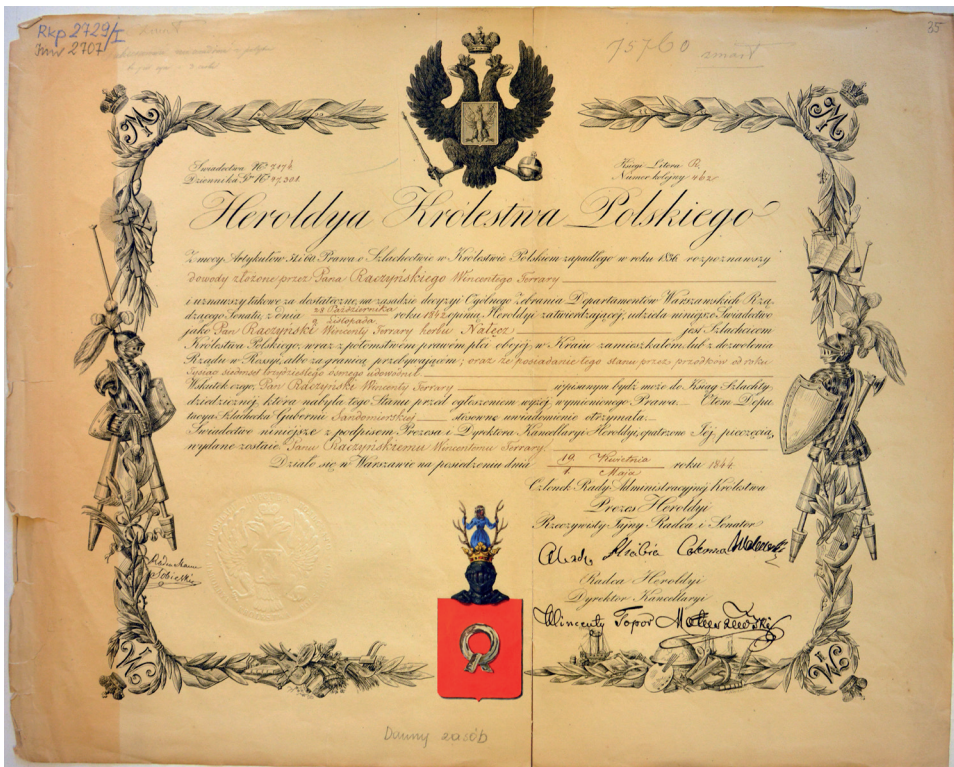 Rkp 2729/I
Inw 2707
75760
zmarł
35
Świadectwo Nº 7174
Dziennika Gº Nº 97,308
Księgi Litera R.
Numer kolejny 462
Heroldya Królestwa Polskiego
Z mocy Artykułów 51 i 60 Prawa o Szlachectwie w Królestwie Polskiem zapadłego w roku 1836 rozpoznawszy
dowody złożone przez Pana Raczyńskiego Wincentego Ferrary
i uznawszy takowe za dostateczne, na zasadzie decyzyi Ogólnego Zebrania Departamentów Warszawskich Rzą-
dzącego Senatu, z dnia 28 Października / 9 Listopada roku 1842 opinię Heroldyi zatwierdzającej, udziela niniejsze Świadectwo
jako Pan Raczyński Wincenty Ferrary herbu Nałęcz jest Szlachcicem
Królestwa Polskiego, wraz z potomstwem prawem płci obojej, w Kraju zamieszkałem, lub z dozwolenia
Rządu w Rossyi, albo za granicą przebywającem; oraz że posiadanie tego stanu przez przodków od roku
tysiąc siedmset trzydziestego ósmego udowodnił
W skutek czego, Pan Raczyński Wincenty Ferrary wpisanym bydź może do Ksiąg Szlachty
dziedzicznej, która nabyła tego Stanu przed ogłoszeniem wyżej wymienionego Prawa. O tem Depu-
tacya Szlachecka Gubernii Sandomierskiej stosowne uwiadomienie otrzymała.
Świadectwo niniejsze z podpisem Prezesa i Dyrektora Kancellaryi Heroldyi, opatrzone Jej pieczęcią,
wydane zostaje Panu Raczyńskiemu Wincentemu Ferrary.
Działo się w Warszawie na posiedzeniu dnia 19 Kwietnia / 1 Maja roku 1844
Członek Rady Administracyjnej Królestwa
Prezes Heroldyi
Rzeczywisty Tajny Radca i Senator
Hrabia Colonna
Radca Heroldyi
Dyrektor Kancellaryi
Wincenty Topor Matuszewski
Sobieski
Dawny zasób